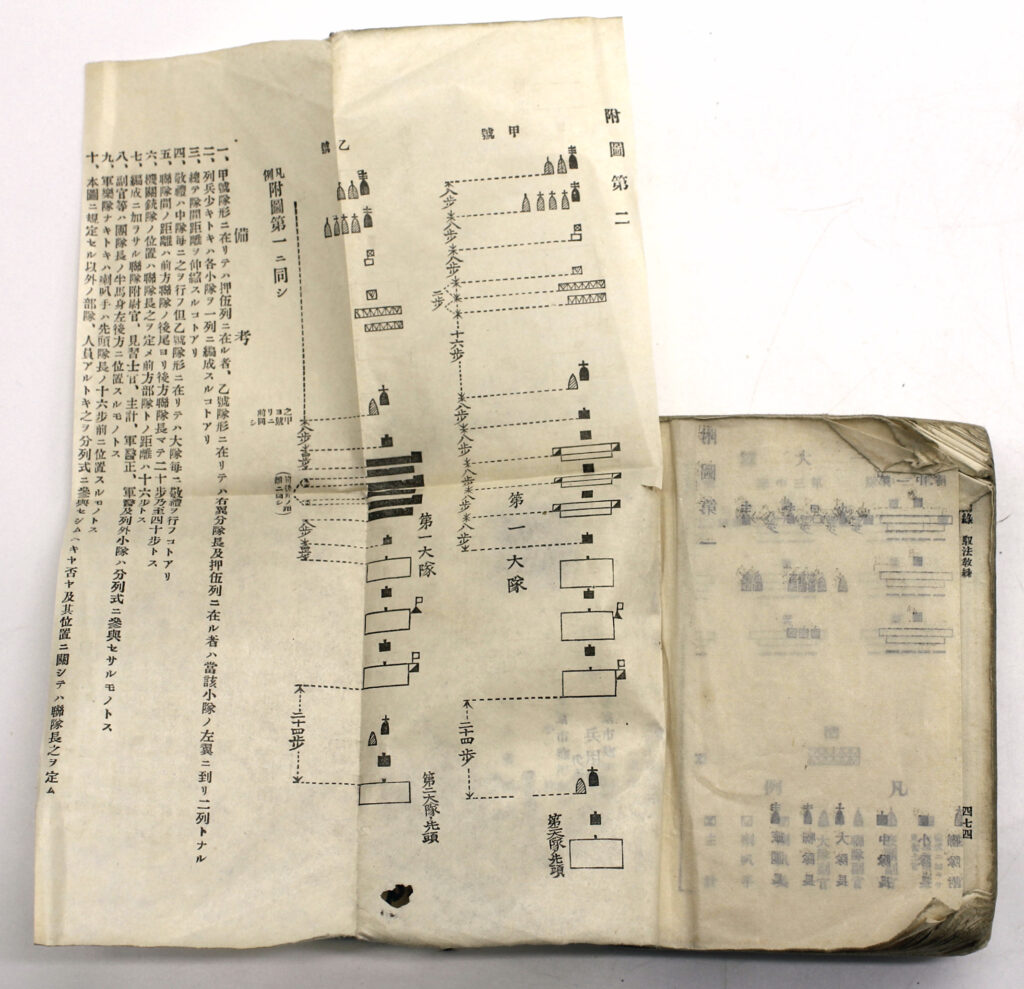 附圖第二
甲號
八步
八步
八步
八步
二步
十六步
八步
八步
八步
八步
八步
第一大隊
二十四步
第二大隊先頭
乙號
八步
八步
第一大隊
二十四步
第二大隊先頭
凡例 附圖第一ニ同シ
備考
一、甲號隊形ニ在リテハ押伍列ニ在ル者、乙號隊形ニ在リテハ右翼分隊長及押伍列ニ在ル者ハ當該小隊ノ左翼ニ到リ二列トナル
二、列兵少キトキハ各小隊ヲ一列ニ編成スルコトアリ
三、總テ隊間距離ヲ伸縮スルコトアリ
四、敬禮ハ中隊每ニ之ヲ行フ但乙號隊形ニ在リテハ大隊每ニ敬禮ヲ行フコトアリ
五、聯隊間ノ距離ハ前方聯隊ノ後尾ヨリ後方聯隊長マテ二十步乃至四十步トス
六、機關銃隊ノ位置ハ聯隊長之ヲ定メ前方部隊トノ距離ハ十六步トス
七、編成ニ加ヲサル聯隊附尉官、見習士官、主計、軍醫正、軍醫及列外小隊ハ分列式ニ參與セサルモノトス
八、副官等ハ團隊長ノ半馬身左後方ニ位置スルモノトス
九、軍樂隊ナキトキハ喇叭手ハ先頭隊長ノ十六步前ニ位置スルモノトス
十、本圖ニ規定セル以外ノ部隊、人員アルトキ之ヲ分列式ニ參與セシムヘキヤ否ヤ及其位置ニ關シテハ聯隊長之ヲ定ム
四七四